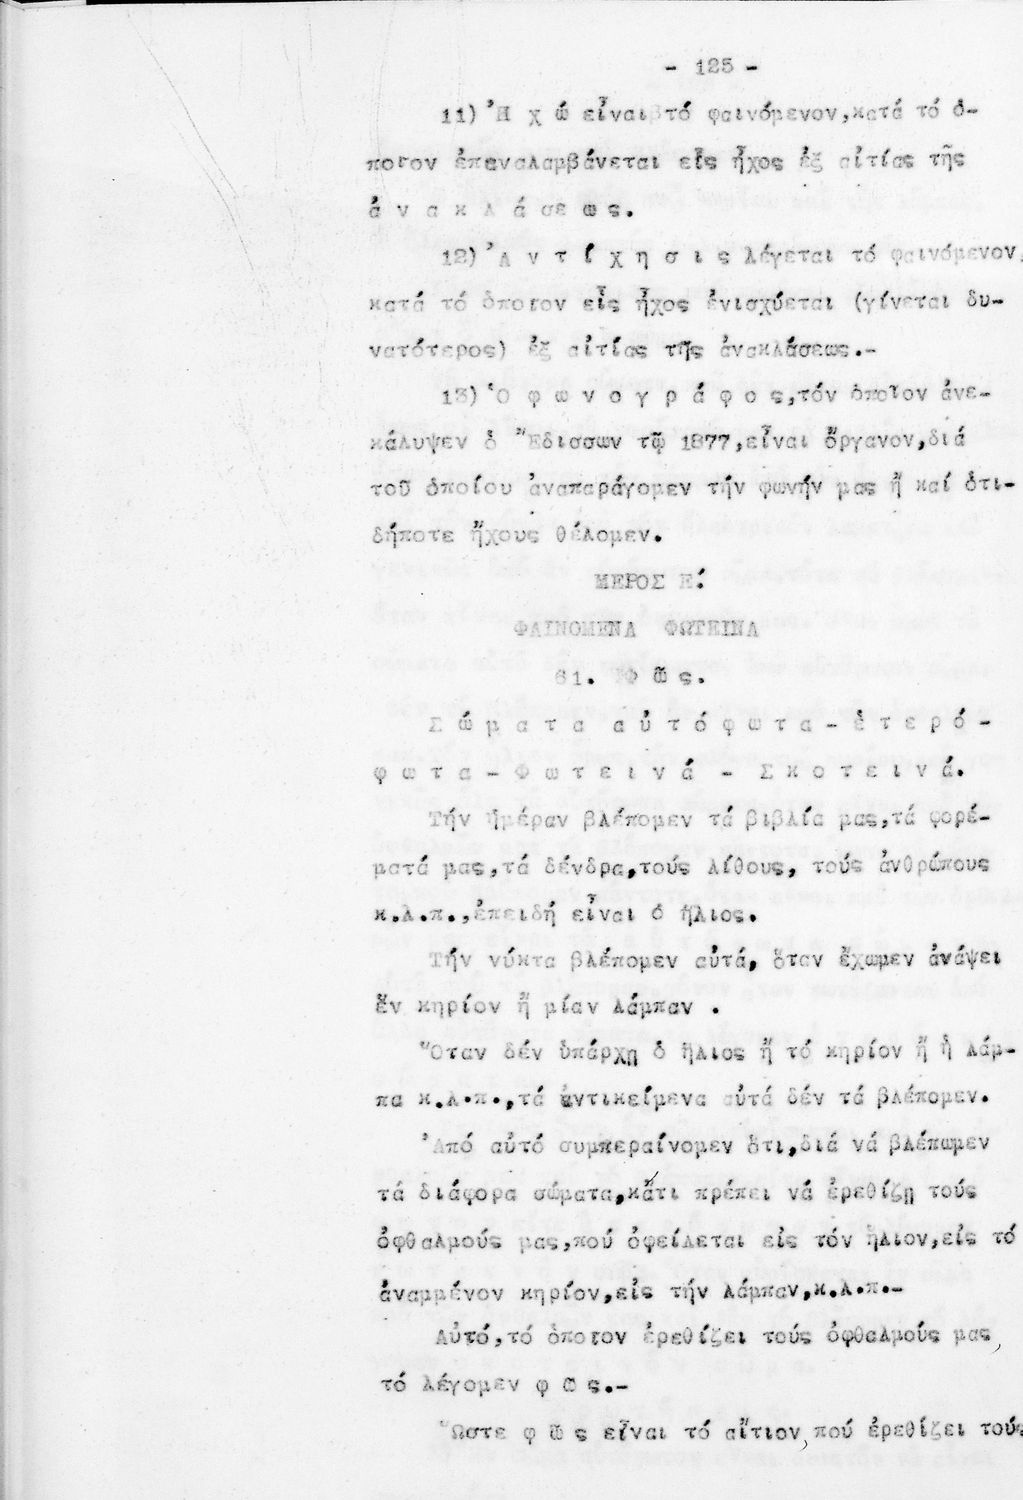 - 125 -
11) Ἠ χ ώ εἶναι τό φαινόμενον,κατά τό ὁ-
ποῖον ἐπαναλαμβάνεται εἷς ἦχος ἐξ αἰτίας τῆς
ἀ ν α κ λ ά σε ω ς.
12) Ἀ ν τ ί χ η σ ι ς λέγεται τό φαινόμενον,
κατά τό ὁποῖον εἷς ἦχος ἐνισχύεται (γίνεται δυ-
νατότερος) ἐξ αἰτίας τῆς ἀνακλάσεως.-
13) Ὁ φ ω ν ο γ ρ ά φ ο ς,τόν ὁποῖον ἀνε-
κάλυψεν ὁ Ἔδισσων τῷ 1877,εἶναι ὄργανον,διά
τοῦ ὁποίου ἀναπαράγομεν τήν φωνήν μας ἤ καί ὁτι-
δήποτε ἤχους θέλομεν.
ΜΕΡΟΣ Ε΄.
ΦΑΙΝΟΜΕΝΑ ΦΩΤΕΙΝΑ
61. Φ ῶ ς.
Σ ώ μ α τ α α ὐ τ ό φ ω τ α - ἑ τ ε ρ ό -
φ ω τ α - Φ ω τ ε ι ν ά - Σ κ ο τ ε ι ν ά.
Τήν ἡμέραν βλέπομεν τά βιβλία μας,τά φορέ-
ματά μας,τά δένδρα,τούς λίθους, τούς ἀνθρώπους
κ.λ.π.,ἐπειδή εἶναι ὁ ἥλιος.
Τήν νύκτα βλέπομεν αὐτά, ὅταν ἔχωμεν ἀνάψει
ἕν κηρίον ἤ μίαν λάμπαν .
Ὅταν δέν ὑπάρχῃ ὁ ἥλιος ἤ τό κηρίον ἤ ἡ λάμ-
πα κ.λ.π.,τά ἀντικείμενα αὐτά δέν τά βλέπομεν.
Ἀπό αὐτό συμπεραίνομεν ὅτι,διά νά βλέπωμεν
τά διάφορα σώματα,κἄτι πρέπει νά ἐρεθίζῃ τούς
ὀφθαλμούς μας,πού ὀφείλεται εἰς τόν ἥλιον,εἰς τό
ἀναμμένον κηρίον,εἰς τήν λάμπαν,κ.λ.π.-
Αὐτό,τό ὁποῖον ἐρεθίζει τούς ὀφθαλμούς μας,
τό λέγομεν φ ῶ ς.-
Ὥστε φ ῶ ς εἶναι τό αἴτιον,πού ἐρεθίζει τούς